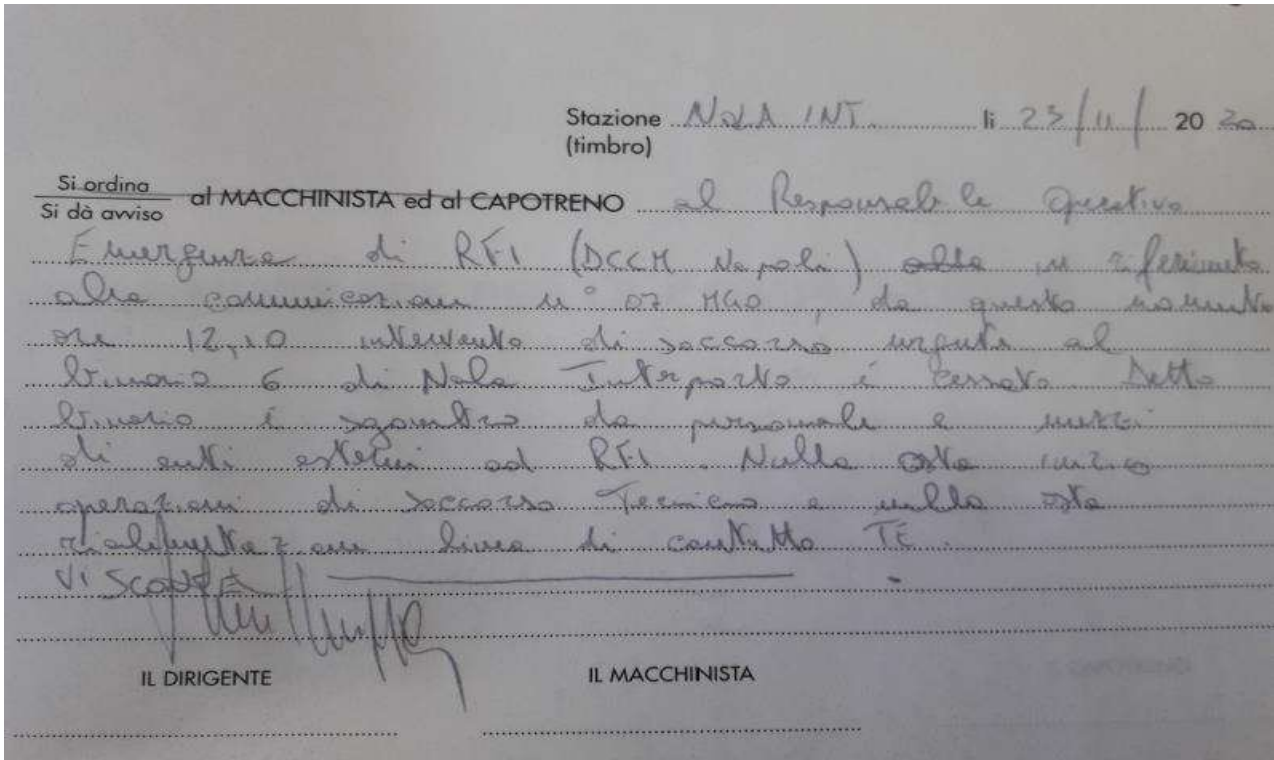 Stazione NOLA INT. li 23/11/ 20 20
(timbro)
Si ordina
Si dà avviso al MACCHINISTA ed al CAPOTRENO al Responsabile Operativo
Emergenza di RFI (DCCM Napoli) alla in riferimento
alla comunicazione n° 07 MGO, da questo momento
ore 12,10 intervento di soccorso urgente al
binario 6 di Nola Interporto è cessato. Detto
binario è sgombro da personale e mezzi
di enti esterni ad RFI. Nulla osta inizio
operazioni di soccorso Tecnico e nulla osta
rialimentazione linea di contatto TE.
VI
IL DIRIGENTE IL MACCHINISTA